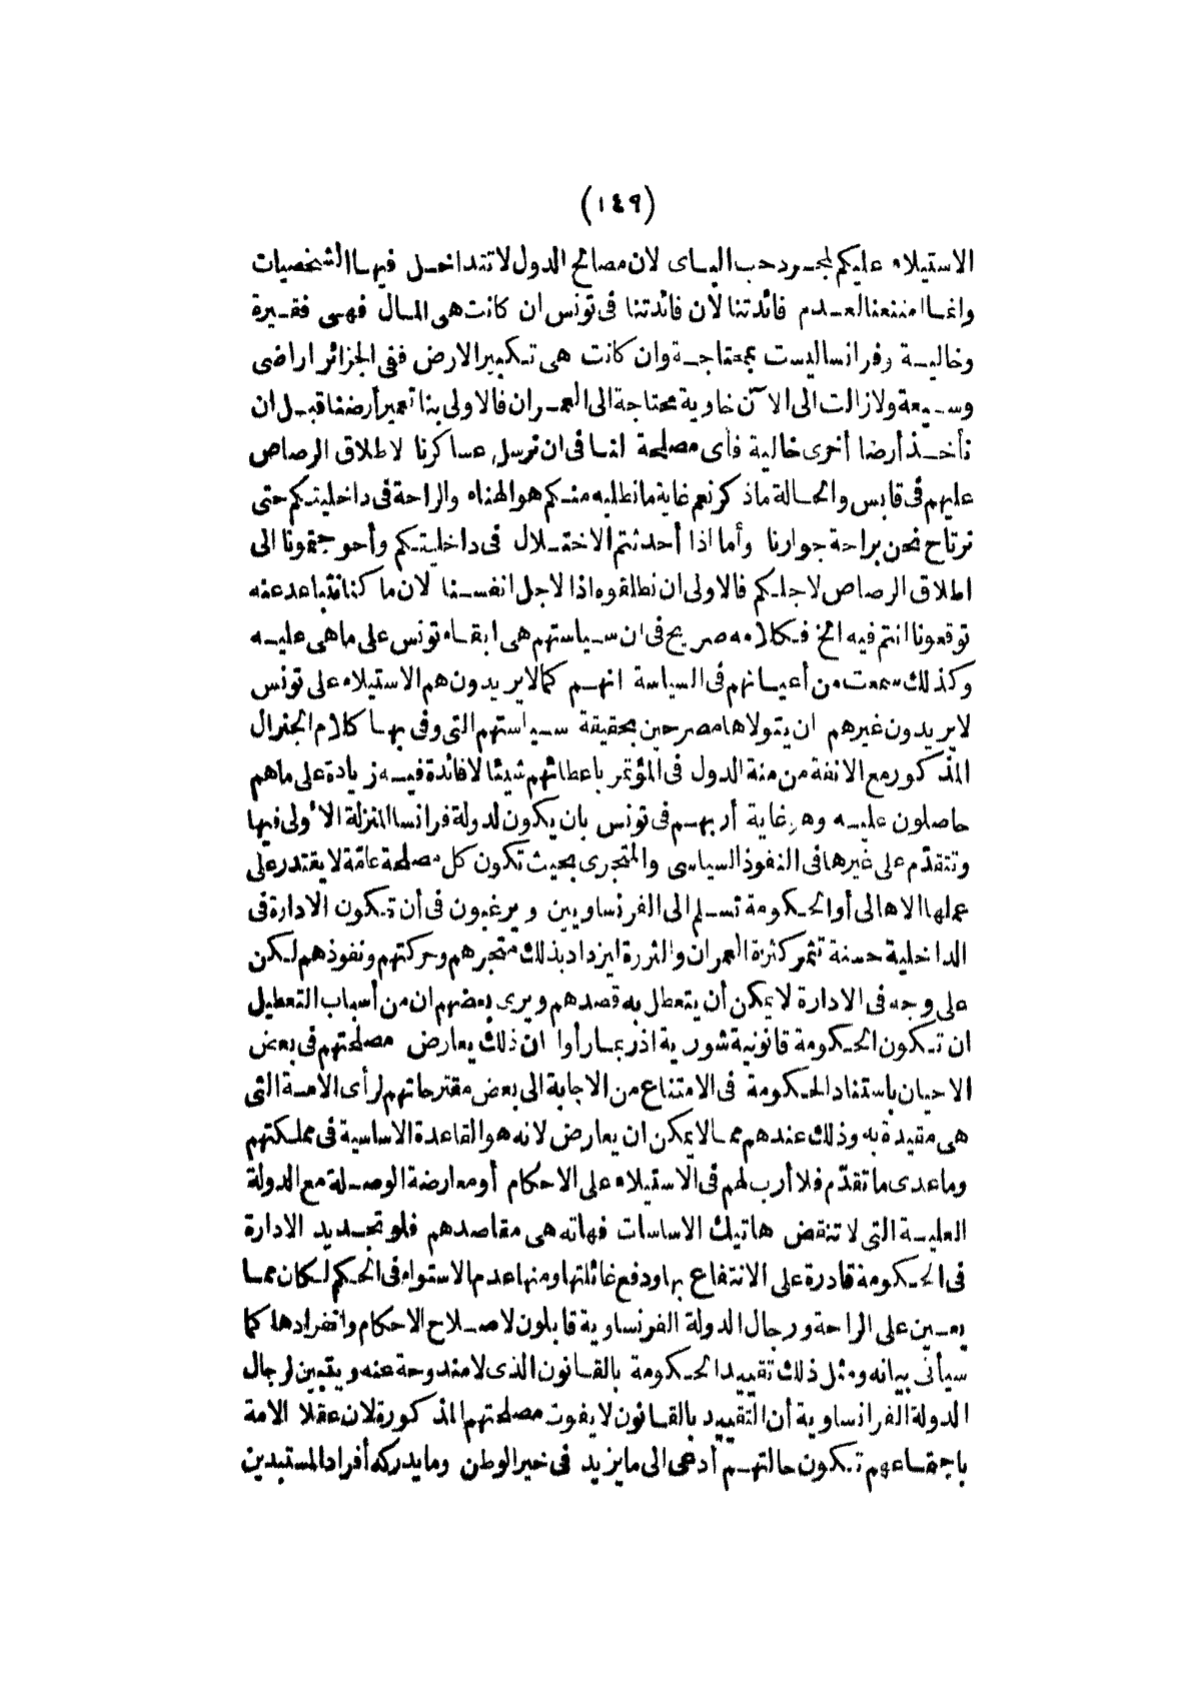 (١٤٩)
الاستيلاء عليكم لمجرد حب الباى لان مصالح الدول لا تتداخل فيها الشخصيات
وانما امتنعنا لعدم فائدتنا لان فائدتنا فى تونس ان كانت هى المال فهى فقيرة
وخالية وفرانسا ليست بمحتاجة وان كانت هى تكبير الارض ففى الجزائر اراضى
وسيعة ولازالت الى الآن خاوية محتاجة الى العمران فالاولى بنا تعمير أرضنا قبل ان
نأخذ أرضا أخرى خالية فأى مصلحة لنا فى ان نرسل عساكرنا لاطلاق الرصاص
عليهم فى قابس والحالة ماذكر نعم غاية ما نطلبه منكم هو الهناء والراحة فى داخليتكم حتى
نرتاح نحن براحة جوارنا وأما اذا أحدثتم الاختلال فى داخليتكم وأحوجتمونا الى
اطلاق الرصاص لاجلكم فالاولى ان نطلقوه اذا لاجل انفسنا لان ما كنا نتباعد عنه
توقعونا انتم فيه الخ فكلامه صريح فى ان سياستهم هى ابقاء تونس على ماهى عليه
وكذلك سمعت من أعيانهم فى السياسة انهم كما لا يريدون هم الاستيلاء على تونس
لا يريدون غيرهم ان يتولاها مصرحين بحقيقة سياستهم التى وفى بها كلام الجنرال
المذكور مع الانفة من منة الدول فى المؤتمر باعطائهم شيئا لا فائدة فيه زيادة على ماهم
حاصلون عليه وهو غاية أربهم فى تونس بان يكون لدولة فرانسا المنزلة الأولى فيها
وتتقدّم على غيرها فى النفوذ السياسى والمتجرى بحيث تكون كل مصلحة عامّة لا يقتدر على
عملها الاهالى أو الحكومة تسلم الى الفرنساويين ويرغبون فى أن تكون الادارة فى
الداخلية حسنة تثمر كثرة العمران والثروة ليزداد بذلك متجرهم وحركتهم ونفوذهم لكن
على وجه فى الادارة لا يمكن أن يتعطل به قصدهم ويرى بعضهم ان من أسباب التعطيل
ان تكون الحكومة قانونية شورية اذ ربما رأوا ان ذلك يعارض مصلحتهم فى بعض
الاحيان باستناد الحكومة فى الامتناع من الاجابة الى بعض مقترحاتهم لرأى الامة التى
هى مقيدة به وذلك عندهم مما لا يمكن ان يعارض لانه هو القاعدة الاساسية فى مملكتهم
وماعدى ماتقدّم فلا أرب لهم فى الاستيلاء على الاحكام أو معارضة الوصلة مع الدولة
العلية التى لا تنقض هاتيك الاساسات فهاته هى مقاصدهم فلو تجديد الادارة
فى الحكومة قادرة على الانتفاع بها ودفع غائلتها ومنها عدم الاستواء فى الحكم لكان مما
يعين على الراحة ورجال الدولة الفرنساوية قابلون لاصلاح الاحكام وانفرادها كما
سيأتى بيانه ومثل ذلك تقييد الحكومة بالقانون الذى لا مندوحة عنه ويتبين لرجال
الدولة الفرانساوية أن التقييد بالقانون لا يفوت مصلحتهم المذكورة لان عقلا الامة
باجتماعهم تكون حالتهم أدعى الى مايزيد فى خير الوطن ومايدركه أفراد المستبدين